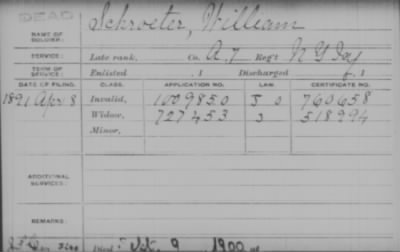 DEAD
NAME OF SOLDIER: Schroeter, William
SERVICE: Late rank, Co. A. 7 Reg't N Y Inf
TERM OF SERVICE: Enlisted , 1 Discharged , 1
DATE OF FILING. CLASS. APPLICATION NO. LAW. CERTIFICATE NO.
1891 Apr 8 Invalid, 1009850 J O 760658
Widow, 727453 3 518994
Minor,
ADDITIONAL SERVICES:
REMARKS:
Died 9 1900 at